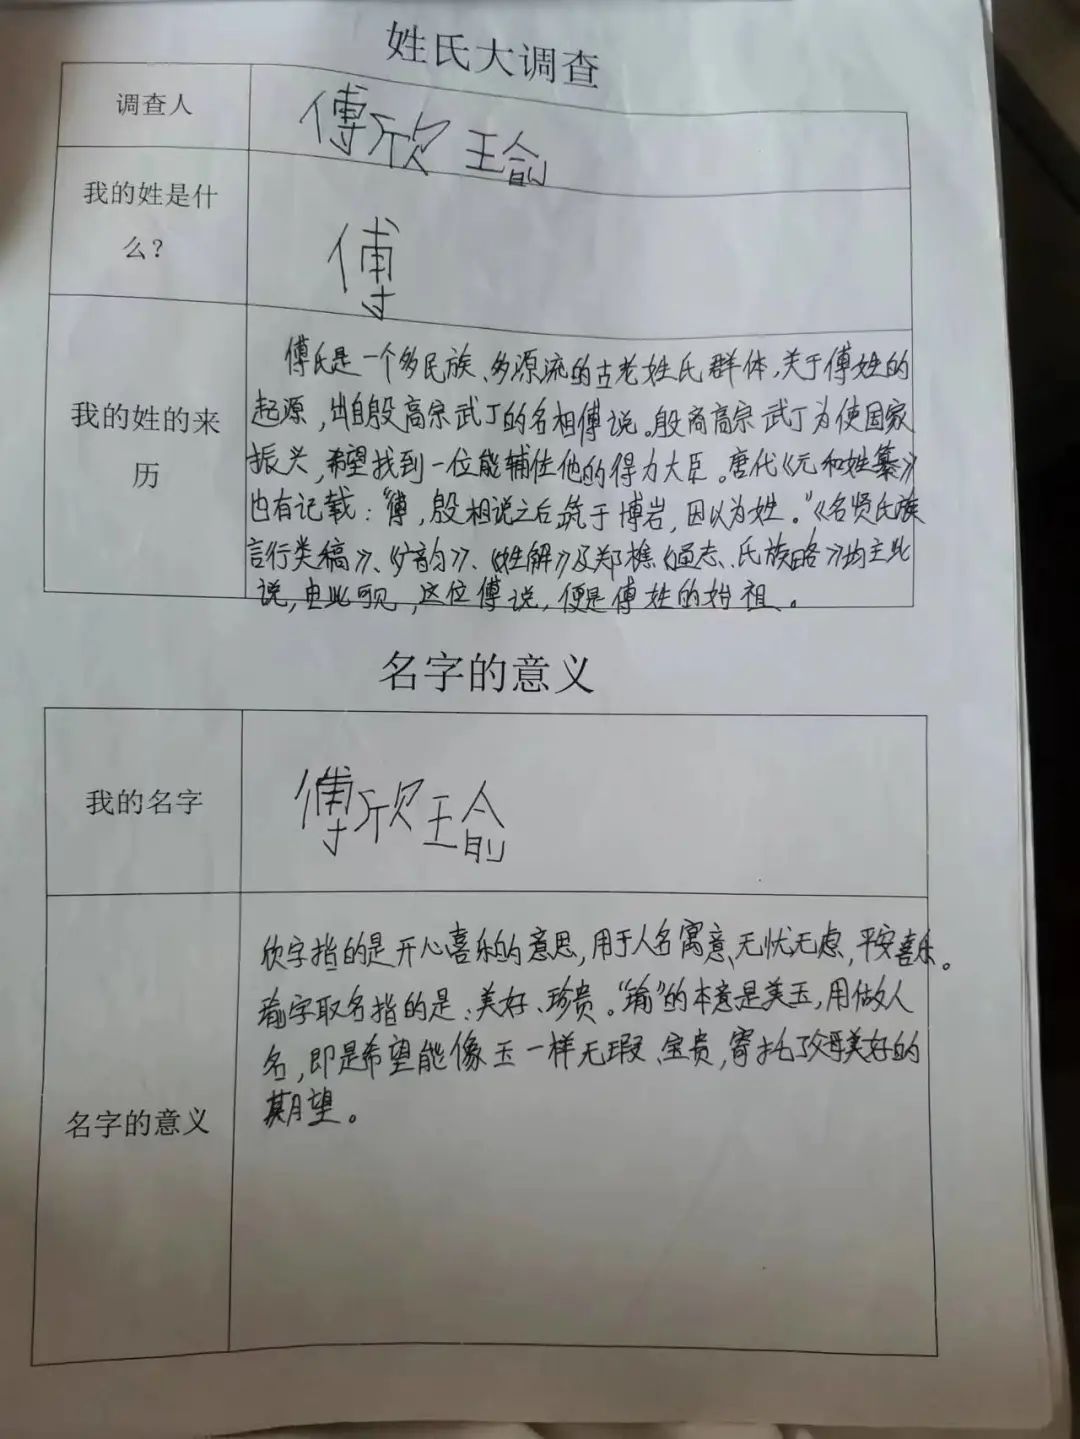 姓氏大调查
调查人
傅欣瑜
我的姓是什
么?
傅
我的姓的来
历
傅氏是一个多民族、多源流的古老姓氏群体,关于傅姓的
起源,出自殷高宗武丁的名相傅说。殷商高宗武丁为使国家
振兴,希望找到一位能辅佐他的得力大臣。唐代《元和姓纂》
也有记载:“傅,殷相说之后,筑于博岩,因以为姓。”《名贤氏族
言行类稿》、《广韵》、《姓解》及郑樵《通志、氏族略》均主此
说,由此可见,这位傅说,便是傅姓的始祖。
名字的意义
我的名字
傅欣瑜
名字的意义
欣字指的是开心喜乐的意思,用于人名寓意、无忧无虑,平安喜乐。
瑜字取名指的是:美好、珍贵。“瑜”的本意是美玉,用做人
名,即是希望能像玉一样无瑕、宝贵,寄托了父母美好的
期望。